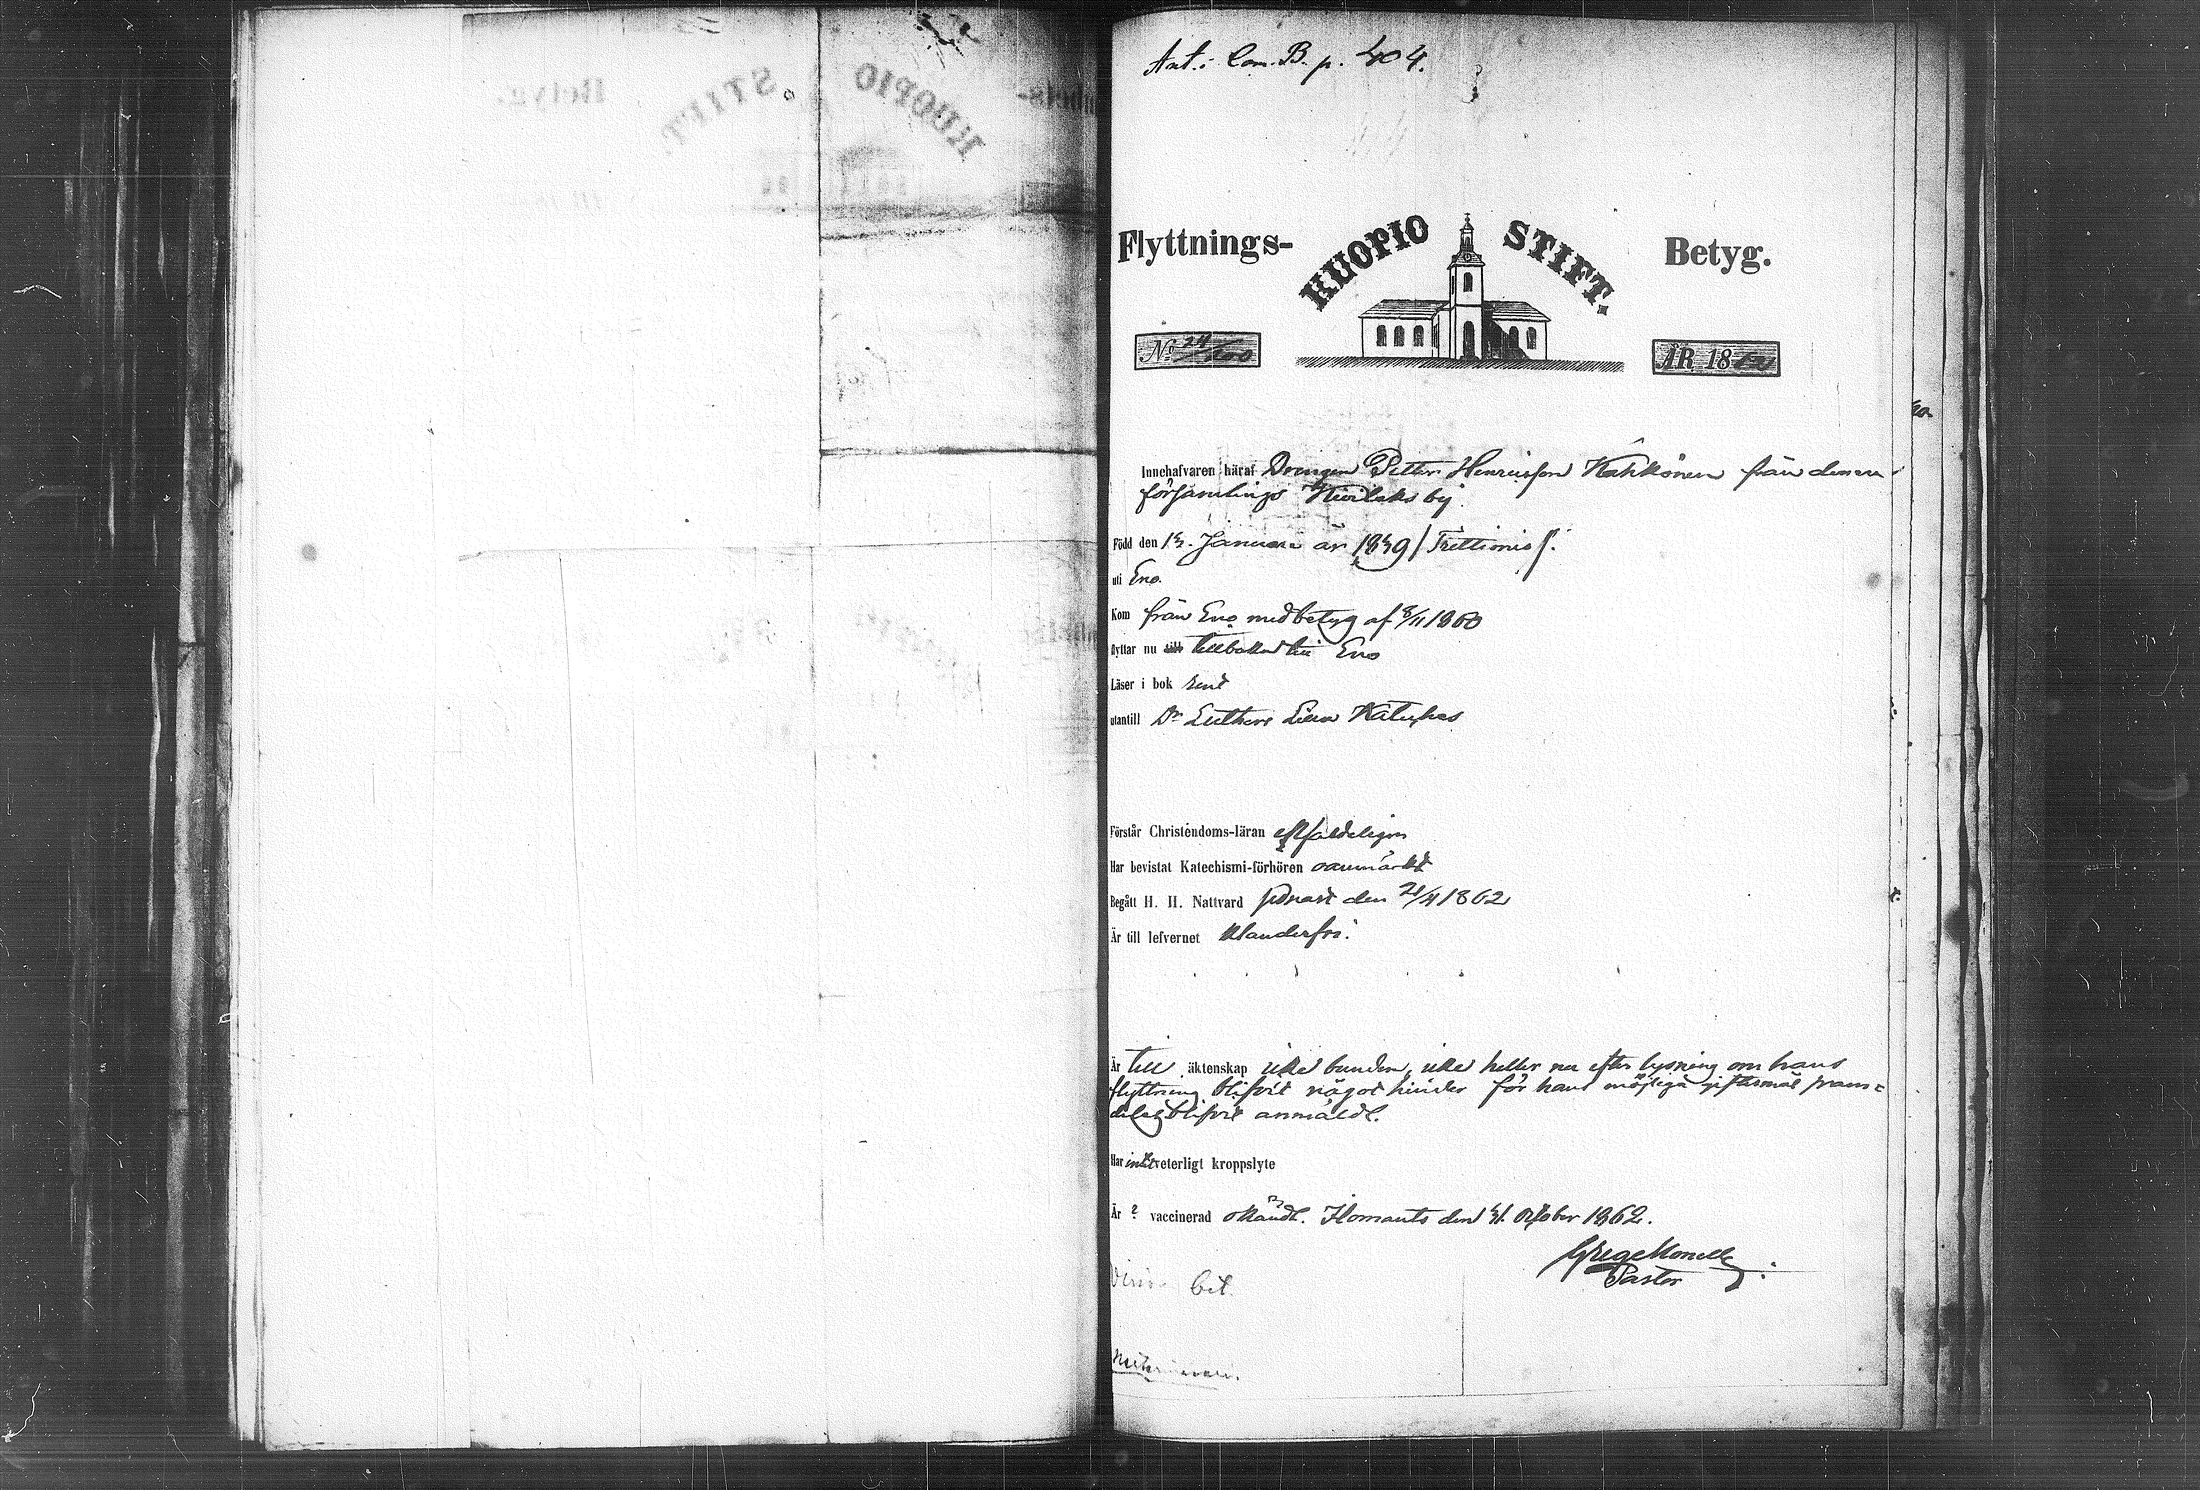 Ant. i Com. B. p. 404.
Flyttnings- KUOPIO STIFT. Betyg.
No 24/100 ÅR 18
Innehafvaren häraf Drengen Petter Henricsson Kahkönen från denna
församlings Huilaks by.
Född den Januari år 1839 / Trettionio /.
uti Eno.
Kom från Eno med betyg af 8/11 1860
flyttar nu till tillbaka till Eno
Läser i bok rent
utantill Dr Luthers Lilla Kateches
Förstår Christendoms-läran
Har bevistat Katechismi-förhören oanmärkt
Begått H. H. Nattvard sednast den 21/4 1862
Är till lefvernet klanderfri.
Är till äktenskap icke bunden, icke heller nu efter lysning om hans
flyttning blifvit något hinder för hans möjliga giftermål fram-
deles blifvit anmäldt.
Har intet veterligt kroppslyte
Är ? vaccinerad okändt. Ilomants den 31 October 1862.
Pastor
bet.